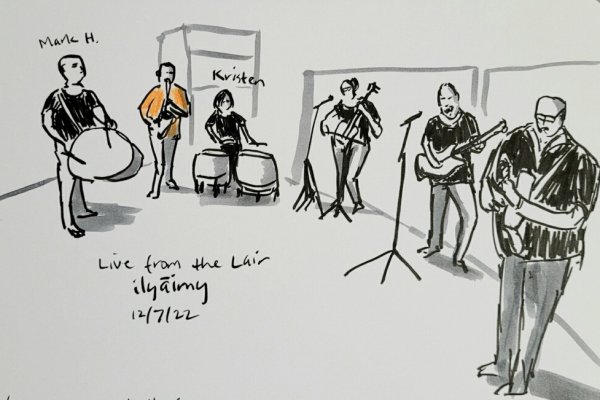 Mark H.
Kristen
Live from the Lair
ilyāimy
12/7/22